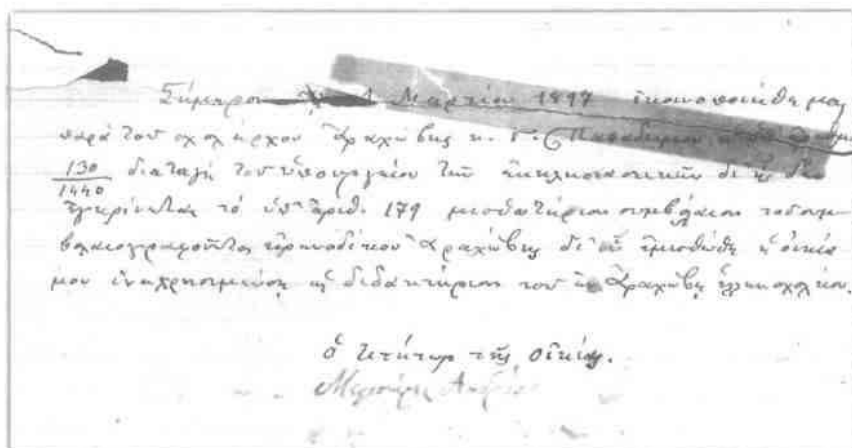 Σήμερον τὴν 1 Μαρτίου 1897 ἐκοινοποιήθη μοι
παρὰ τοῦ σχολάρχου Ἀραχώβης κ. Γ. Παπαδήμου
130/1440 διαταγὴ τοῦ ὑπουργείου τῶν ἐκκλησιαστικῶν δι' ἧς δὲν
ἐγκρίνεται τὸ ὑπ' ἀριθ. 179 μισθωτήριον συμβόλαιον τοῦ συμ
βολαιογραφοῦντος εἰρηνοδίκου Ἀραχώβης δι' οὗ ἐμισθώθη ἡ οἰκία
μου ἵνα χρησιμεύσῃ ὡς διδακτήριον τοῦ ἐν Ἀραχώβῃ ἑλλην. σχολείου.
ὁ κτήτωρ τῆς οἰκίας.